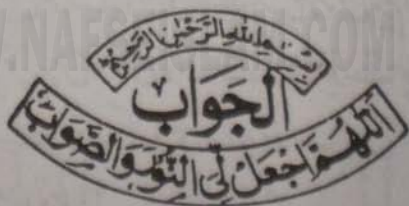 WWW.NAFSEISLAM.COM
بسم الله الرحمن الرحيم
الجواب
اللهم اجعل لی النور والصواب